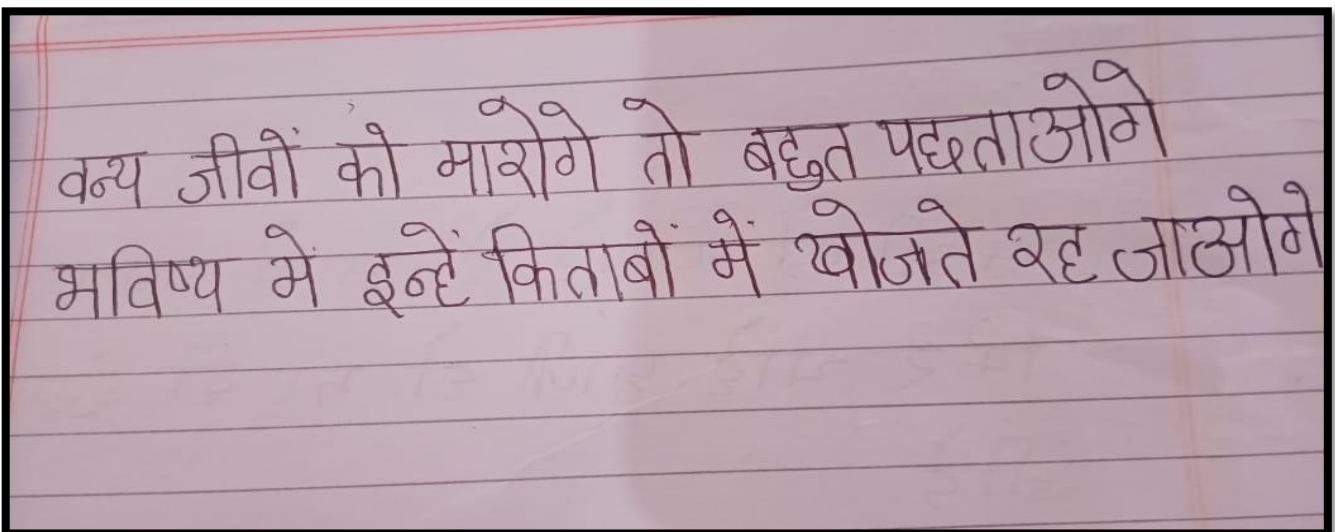 वन्य जीवों को मारोगे तो बहुत पछताओगे
भविष्य में इन्हें किताबों में खोजते रह जाओगे